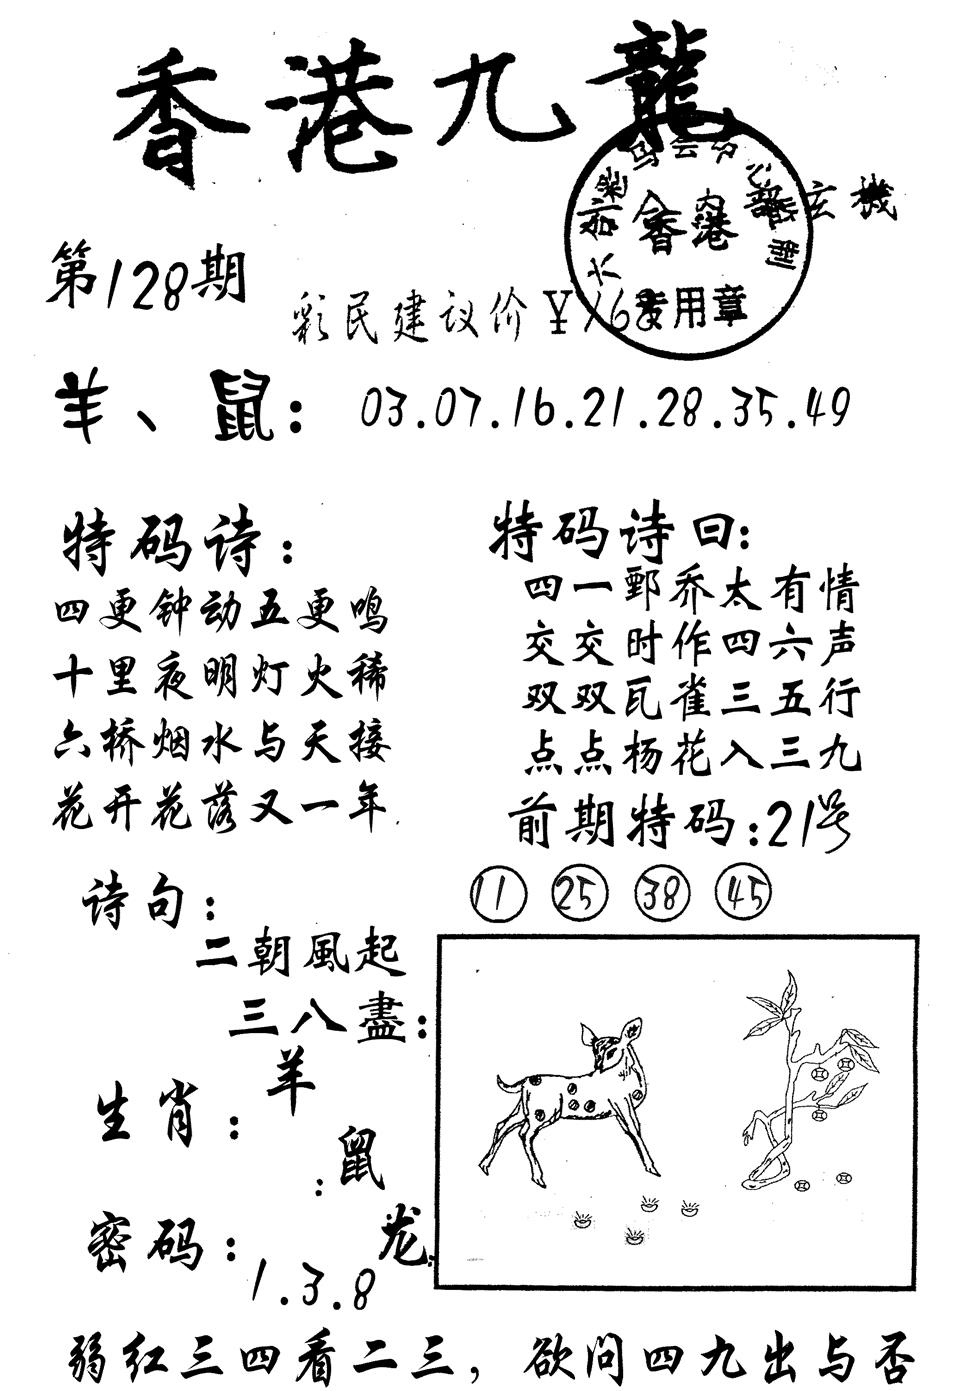 香港九龍
玄機
香港
专用章
第128期
彩民建议价¥168
羊、鼠：03.07.16.21.28.35.49
特码诗：
四更钟动五更鸣
十里夜明灯火稀
六桥烟水与天接
花开花落又一年
特码诗曰：
四一鄄乔太有情
交交时作四六声
双双瓦雀三五行
点点杨花入三九
前期特码：21号
11 25 38 45
诗句：
二朝風起
三八盡：
生肖：
羊
：鼠
龙
密码：
1.3.8
弱红三四看二三，欲问四九出与否